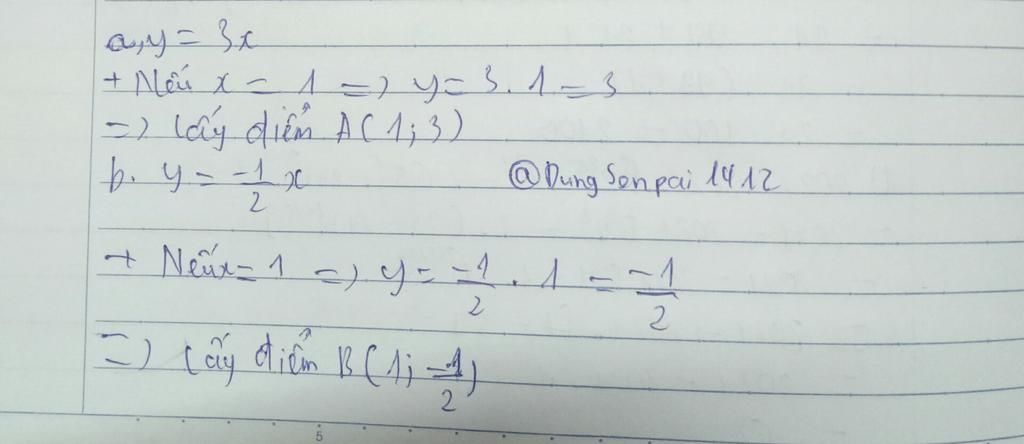 a, y = 3x
+ Nếu x = 1 => y = 3 . 1 = 3
=> Lấy điểm A(1; 3)
b. y = -1/2 x @DungSenpai1412
+ Nếu x = 1 => y = -1/2 . 1 = -1/2
=> Lấy điểm B(1; -1/2)
5